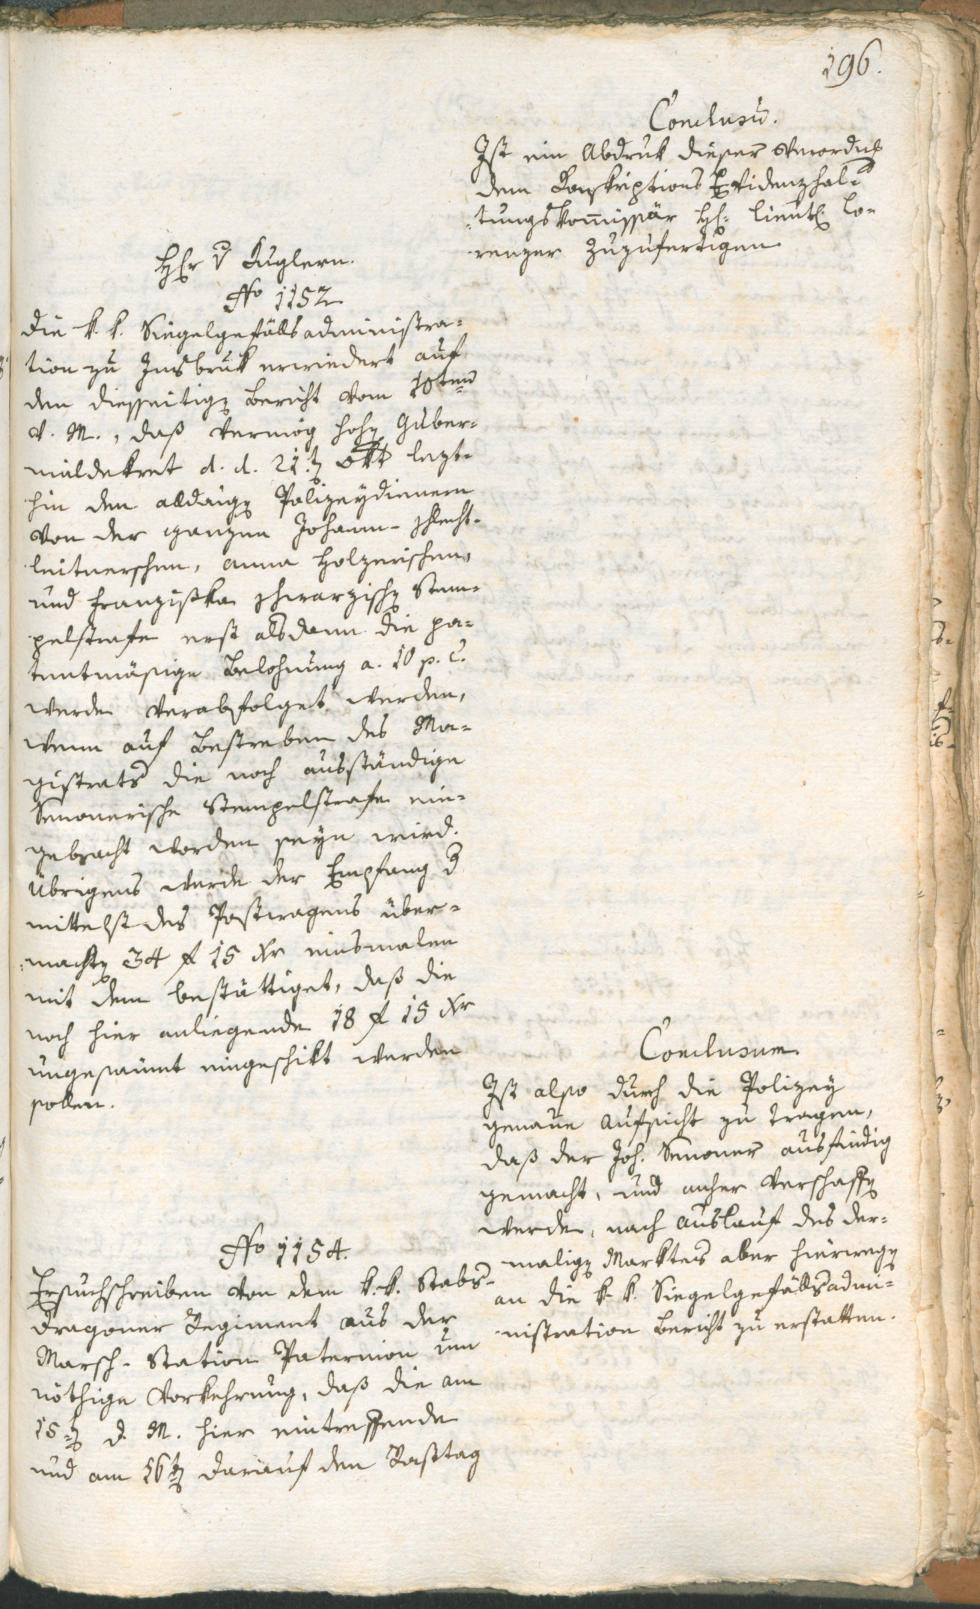 196.
Conclusū.
Ist ein Abdruk dieser Verordng
dem Konskriptions Evidenzhal=
tungskom̄issär H: Lieut: Lo=
renzer zuzufertigen
H v Kuglern.
No 1152
Die k. k. Siegelgefällsadministra=
tion zu Insbruk erwiedert auf
den diesseitigen Bericht vom 18ten
v. M., daß vermög hohen Guber=
nialdekret d. d. 21ten Okt lezt=
hin den alldaigen Polizeydienern
von der ganzen Johann-Schlecht=
leitnerschen, Anna Holzerischen,
und Franziska Schwarzischen Stem=
pelstrafe erst alsdann die pa=
tentmäsige Belohnung a. 10 p. C.
werde verabfolget werden,
wenn auf Bestreben des Ma=
gistrats die noch ausständige
Simonerische Stempelstrafe ein=
gebracht worden seyn wird.
Übrigens werde der Empfang d
mittelst des Postwagens über=
machten 34 f 15 Xr einsmalen
mit dem bestättiget, daß die
noch hier anliegende 18 f 15 Xr
ungesaumt eingeschikt werden
sollen.
Conclusum
Ist also durch die Polizey
genaue Aufsicht zu tragen,
daß der Joh. Simoner ausfindig
gemacht, und anher verschaffen
werde, nach Auslauf des der=
maligen Marktes aber hierwegen
an die k. k. Siegelgefällsadmi=
nistration Bericht zu erstatten.
No 1154.
Ersuchschreiben von dem k. k. Stabs=
dragoner Regiment aus der
Marsch-Station Paternion um
nöthige Vorkehrung, daß die am
15ten d. M. hier eintreffende
und am 16ten darauf den Rasttag